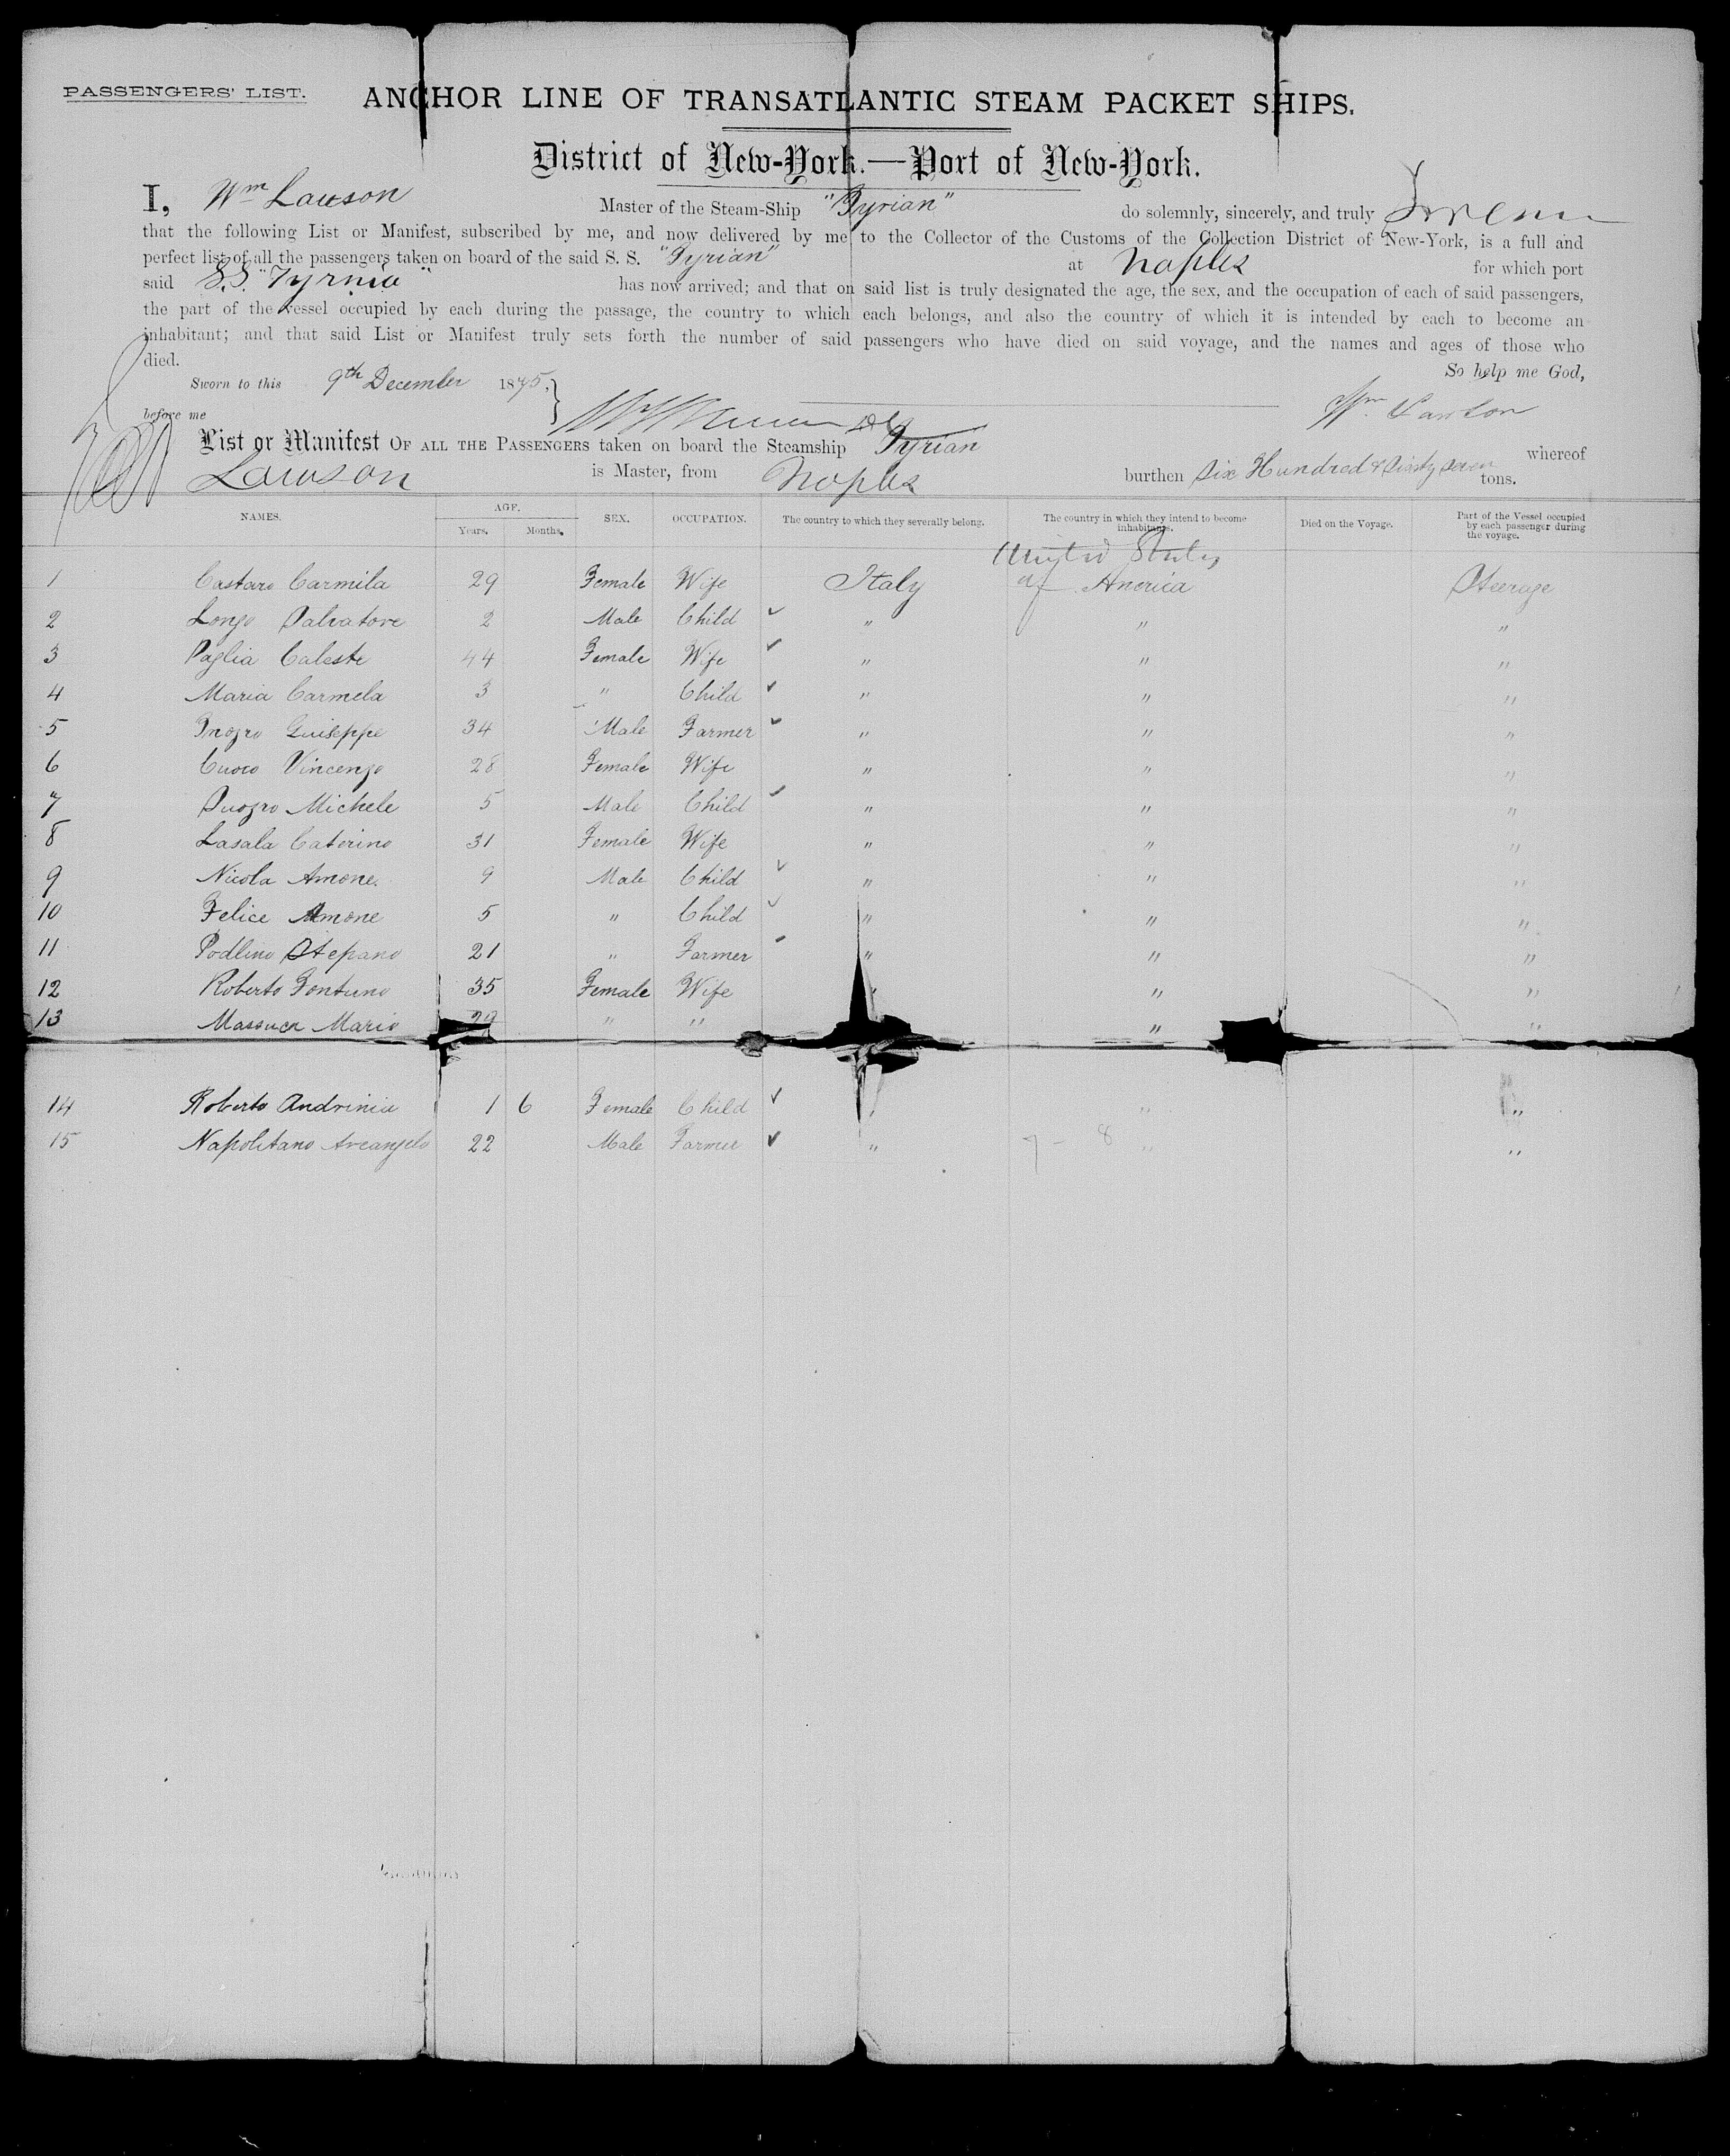 PASSENGERS' LIST.
ANCHOR LINE OF TRANSATLANTIC STEAM PACKET SHIPS.
District of New-York.—Port of New-York.
I, Wm Lawson Master of the Steam-Ship "Tyrian" do solemnly, sincerely, and truly Swear
that the following List or Manifest, subscribed by me, and now delivered by me to the Collector of the Customs of the Collection District of New-York, is a full and
perfect list of all the passengers taken on board of the said S. S. "Tyrian" at Naples for which port
said S.S. "Tyrnia" has now arrived; and that on said list is truly designated the age, the sex, and the occupation of each of said passengers,
the part of the vessel occupied by each during the passage, the country to which each belongs, and also the country of which it is intended by each to become an
inhabitant; and that said List or Manifest truly sets forth the number of said passengers who have died on said voyage, and the names and ages of those who
died. So help me God,
Sworn to this 9th December 1875,
before me Wm Lawson
List or Manifest OF ALL THE PASSENGERS taken on board the Steamship Tyrian whereof
Lawson is Master, from Naples burthen Six Hundred & Sixty Seven tons.
NAMES. AGE. Years. Months. SEX. OCCUPATION. The country to which they severally belong. The country in which they intend to become inhabitants. Died on the Voyage. Part of the Vessel occupied by each passenger during the voyage.
United States
1 Castaro Carmila 29 Female Wife Italy of America Steerage
2 Longo Salvatore 2 Male Child " " "
3 Paglia Caleste 44 Female Wife " " "
4 Maria Carmela 3 " Child " " "
5 Guiseppe 34 Male Farmer " " "
6 Cuoco Vincenzo 28 Female Wife " " "
7 Suozro Michele 5 Male Child " " "
8 Lasala Caterino 31 Female Wife " " "
9 Nicola Amone. 9 Male Child " " "
10 Felice Amone 5 " Child " " "
11 Podlino Stepano 21 " Farmer " " "
12 Roberto Fontuno 35 Female Wife " " "
13 Massucn Mario 29 " " " "
14 Roberto Andrinia 1 6 Female Child " " "
15 Napolitano Arcangelo 22 Male Farmer " " "
7 - 8